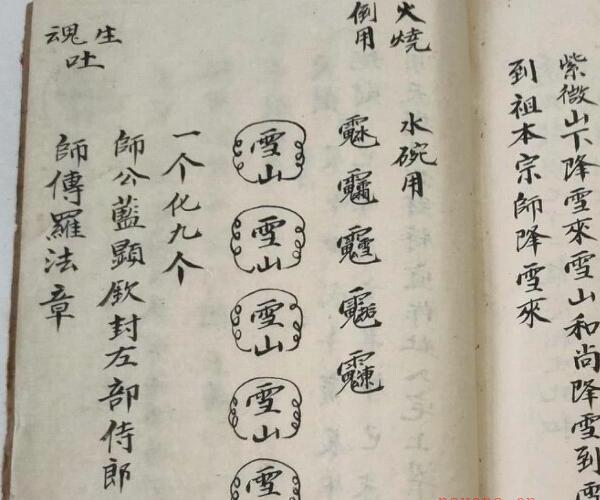 紫微山下降雪來雪山和尚降雪到
到祖本宗師降雪來
火燒
倒用
水碗用
雪山
雪山
雪山
雪山
雪
一个化九个
師公藍顯欽封左部侍郎
師傅羅法章
生魂
吐